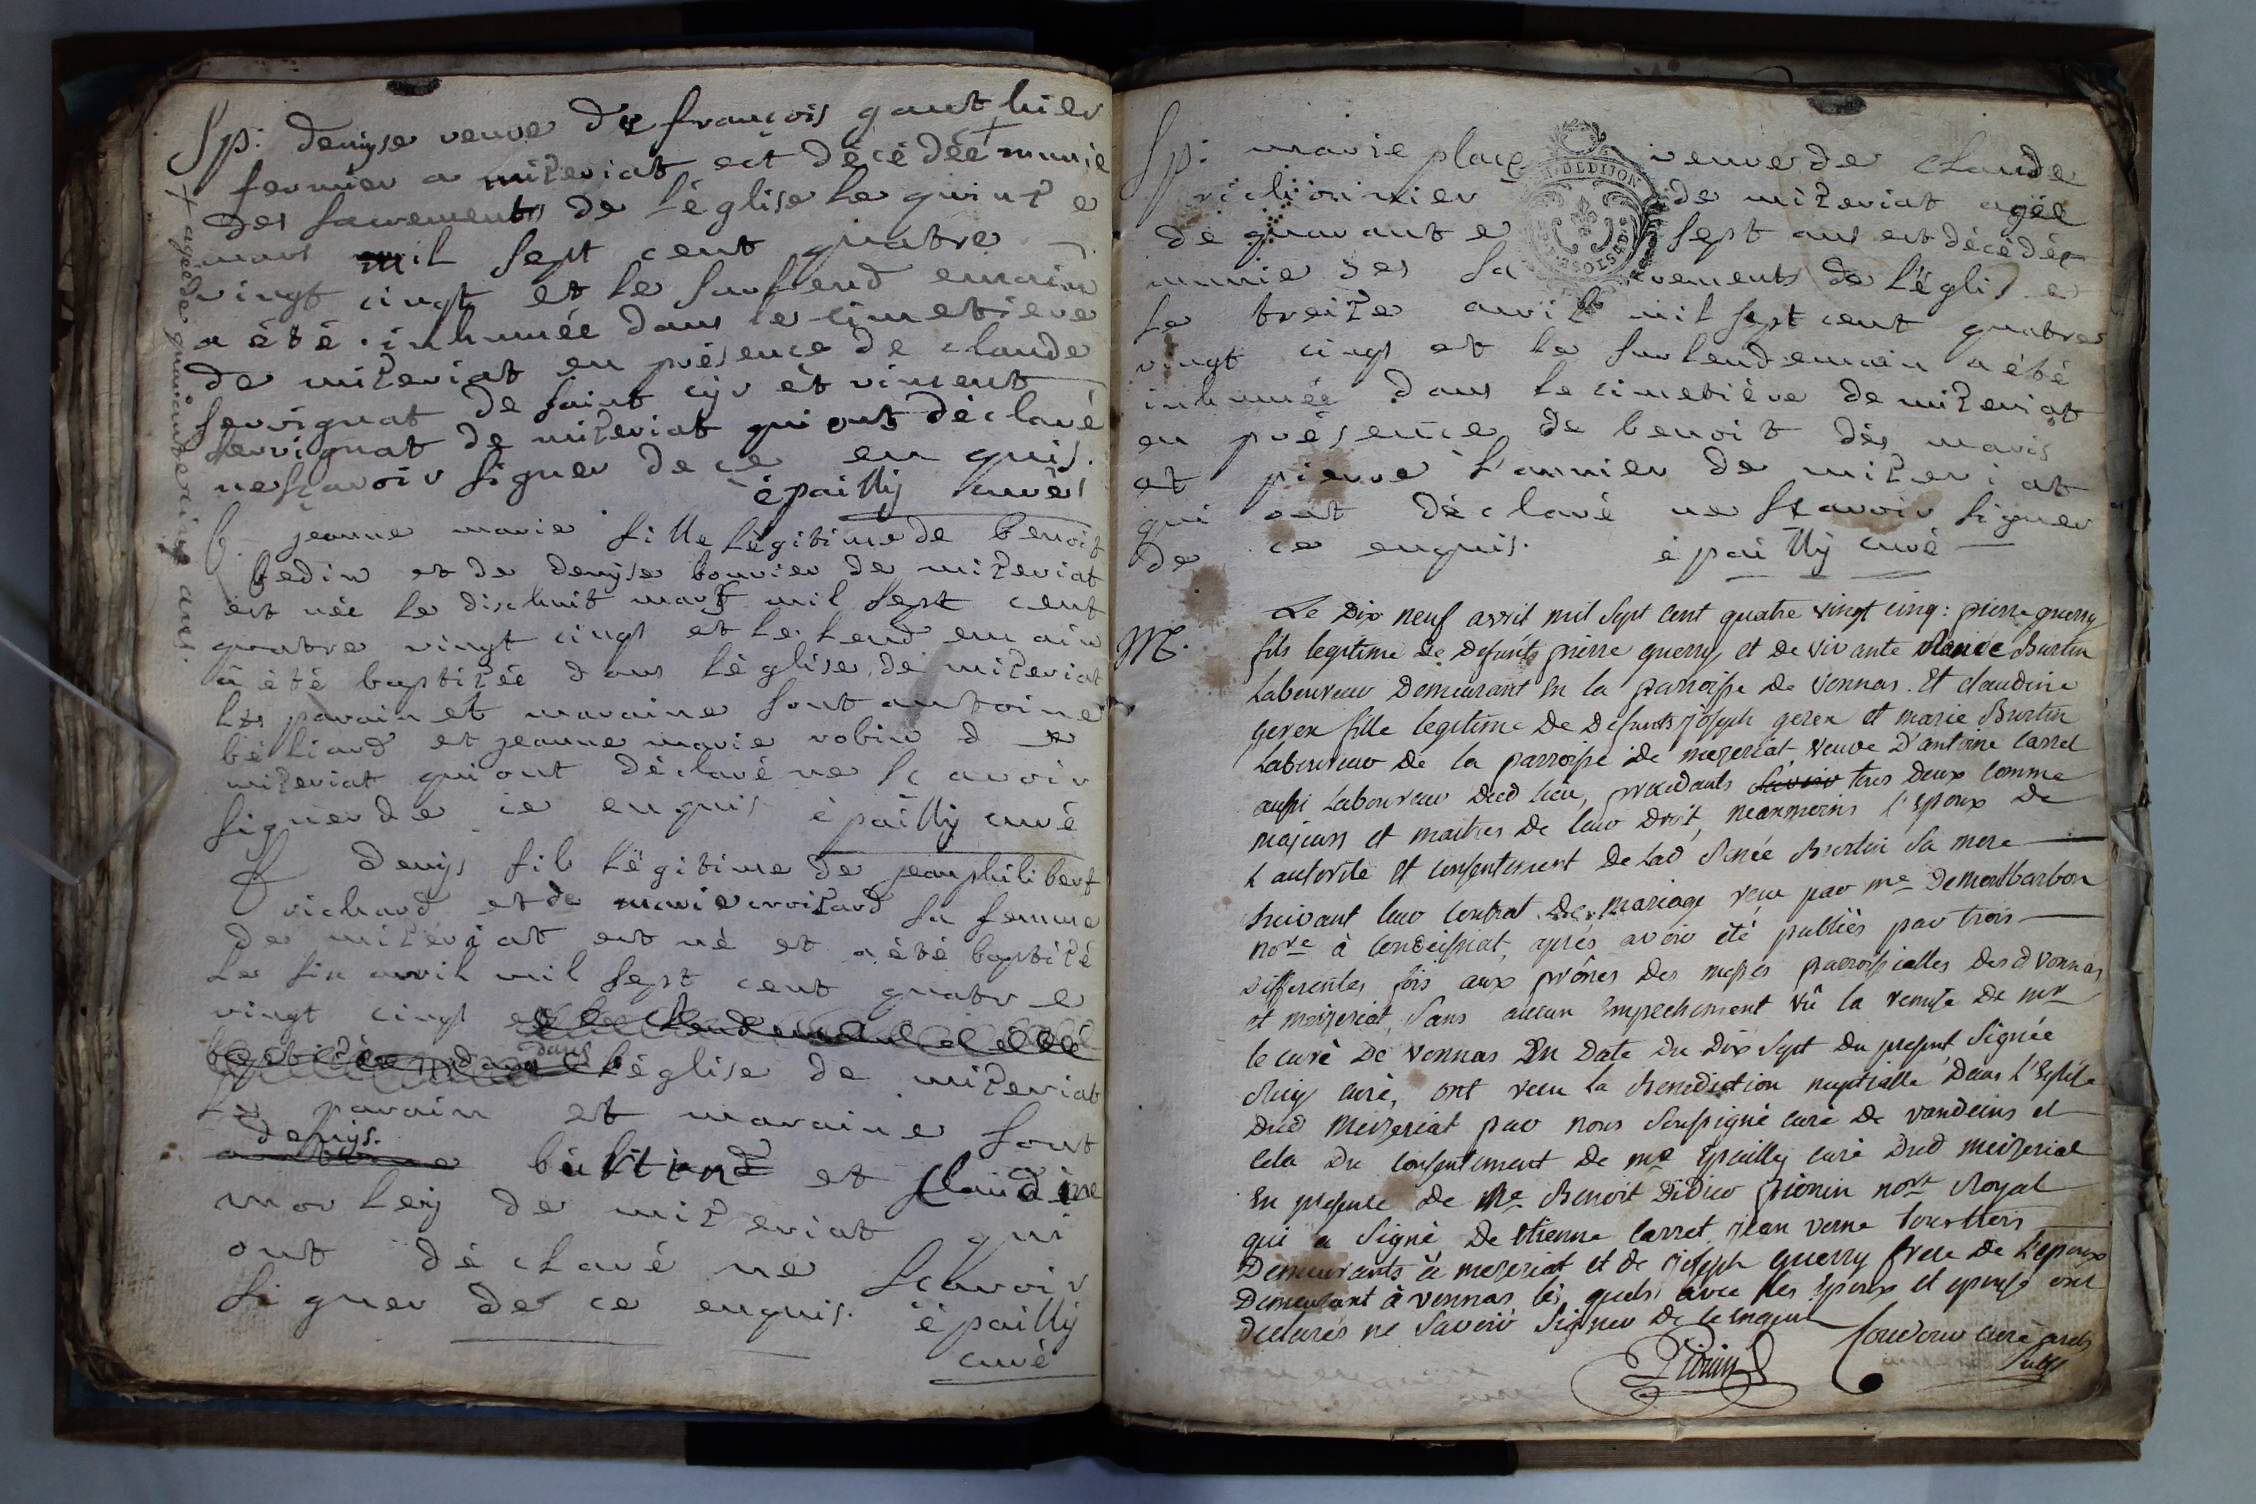 Sp: denyse veuve de françois gauthier
fermier a mizeriat est décédée + munie
des sacrements de l'église le quinze
mars mil sept cent quatre
vingt cinq et le surlendemain
a été inhumée dans le cimetiere
de mizeriat en présence de claude
servignat de saint cyr et vincent
servignat de mizeriat qui ont déclaré
ne sçavoir signer de ce enquis.
épailly curé
+ agée de quarante cinq ans.
b. jeanne marie fille légitime de benoit
bedin et de denyse bouvier de mizeriat
est née le dixhuit mars mil sept cent
quatre vingt cinq et le lendemain
a été baptizée dans l'église de mizeriat
les parain et maraine sont antoine
béliard et jeanne marie robin de
mizeriat qui ont déclaré ne scavoir
signer de ce enquis épailly curé
b denys fils légitime de jeanphilibert
richard et de marie croizard sa femme
de mizeriat est né et a été baptizé
le six avril mil sept cent quatre
vingt cinq et le lendemain a été
baptizé dans dans l'église de mizeriat
les parain et maraine sont
denys.
antoine béliard et claudine
morley de mizeriat qui
ont déclaré ne scavoir
signer de ce enquis. épailly
curé
Sp: marie place veuve de claude
de mizeriat agée
de quarante sept ans est décédée
munie des sacrements de l'église
le treize avril mil sept cent quatre
vingt cinq et le surlendemain a été
inhumée dans le cimetière de mizeriat
en présence de benoit des maris
et pierre l'annier de mizeriat
qui ont déclaré ne scavoir signer
de ce enquis. épailly curé
DEDIJON
Le Dix neuf avril mil sept cent quatre vingt cinq: pierre guerry
M. fils legitime de defunts pierre guerry et de vivante Renée Burtin
Laboureur Demeurant en la parroisse de vonnas. Et claudine
geren fille legitime De Defunts joseph geren et marie Burtin
Laboureur de la parroisse de mezeriat veuve D'antoine carret
aussi Laboureur dud lieu, procedants savoir tous deux comme
majeurs et maitres de leur droit, neanmoins l'epoux de
L'autorité et consentement de lad Renée Burtin sa mere
suivant leur contrat de mariage recu par me Demontbarbon
nore à condeissiat, après avoir été publiés par trois
differentes fois aux prônes des messes parroissialles desd vonnas
et meizeriat, Sans aucun empechement vû la remise de mr
le curé De vonnas En Date Du Dix sept du present Signée
curé, ont recu la Benediction nuptialle Dans L'Eglise
Dud Meizeriat par nous soussigné curé de vandeins et
cela Du consentement de me Epailly curé Dud meizeriat
En presence de Me Benoit Didier pionin nore Royal
qui a Signé De Etienne carret jean verne tous trois
Demeurants à mezeriat et de joseph guerry frere de l'epoux
Demeurant à vonnas les quels avec les Epoux et epouse ont
declarés ne Savoir Signer de ce enquis
Pionin curé